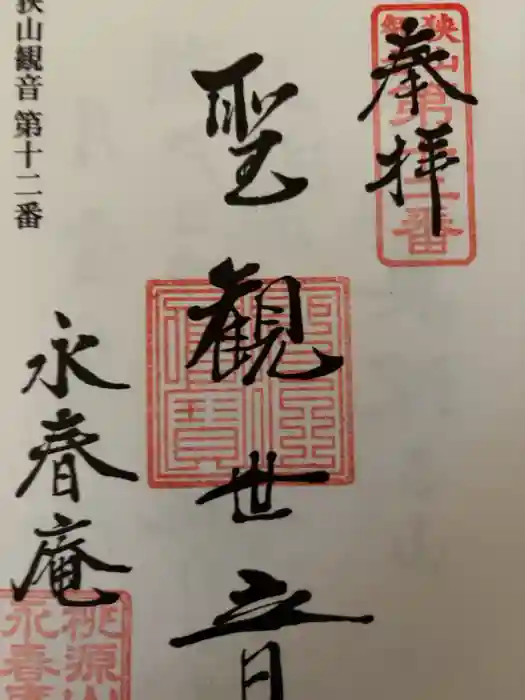 奉拝
狭山第十二番
聖觀世音
狭山観音 第十二番
永春庵
桃源山
永春庵